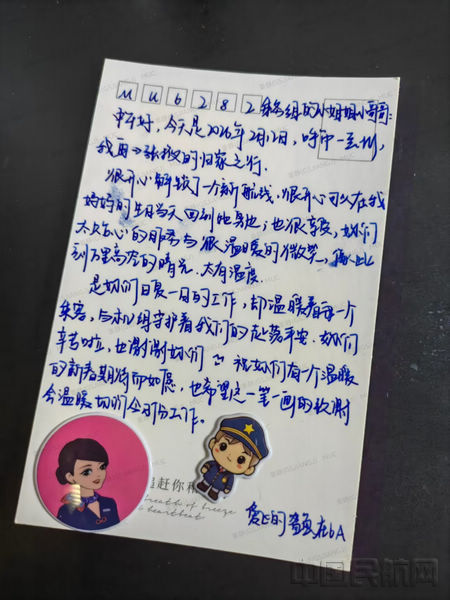 MU6282乘务组的小姐姐小哥哥:
中午好,今天是2026年2月12日,呼市一兰州,
我再次的归家之行。
很开心解锁了一个新航线,很开心可以在我
妈妈的生日当天回到她身边;也很喜欢,你们
太贴心的服务与很温暖的微笑,
到万里高空的晴光,太有温度。
是你们日复一日的工作,却温暖着每一个
乘客,与机组守护着我们的起落平安。你们
辛苦啦,也谢谢你们 祝你们有一个温暖
的新春期待而如愿,也希望这一笔一画的
会温暖你们今日份工作。
赶你
breath of breeze
heartbeat
爱你的 在6A
中国民航网